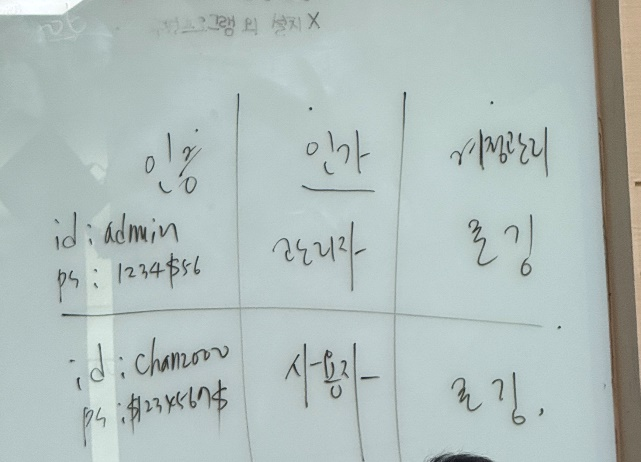 프로그램의 설치X
인증
인가
계정관리
id: admin
ps: 1234$56
관리자
로깅
id: chan2000
ps: $1234567$
사용자
로깅.